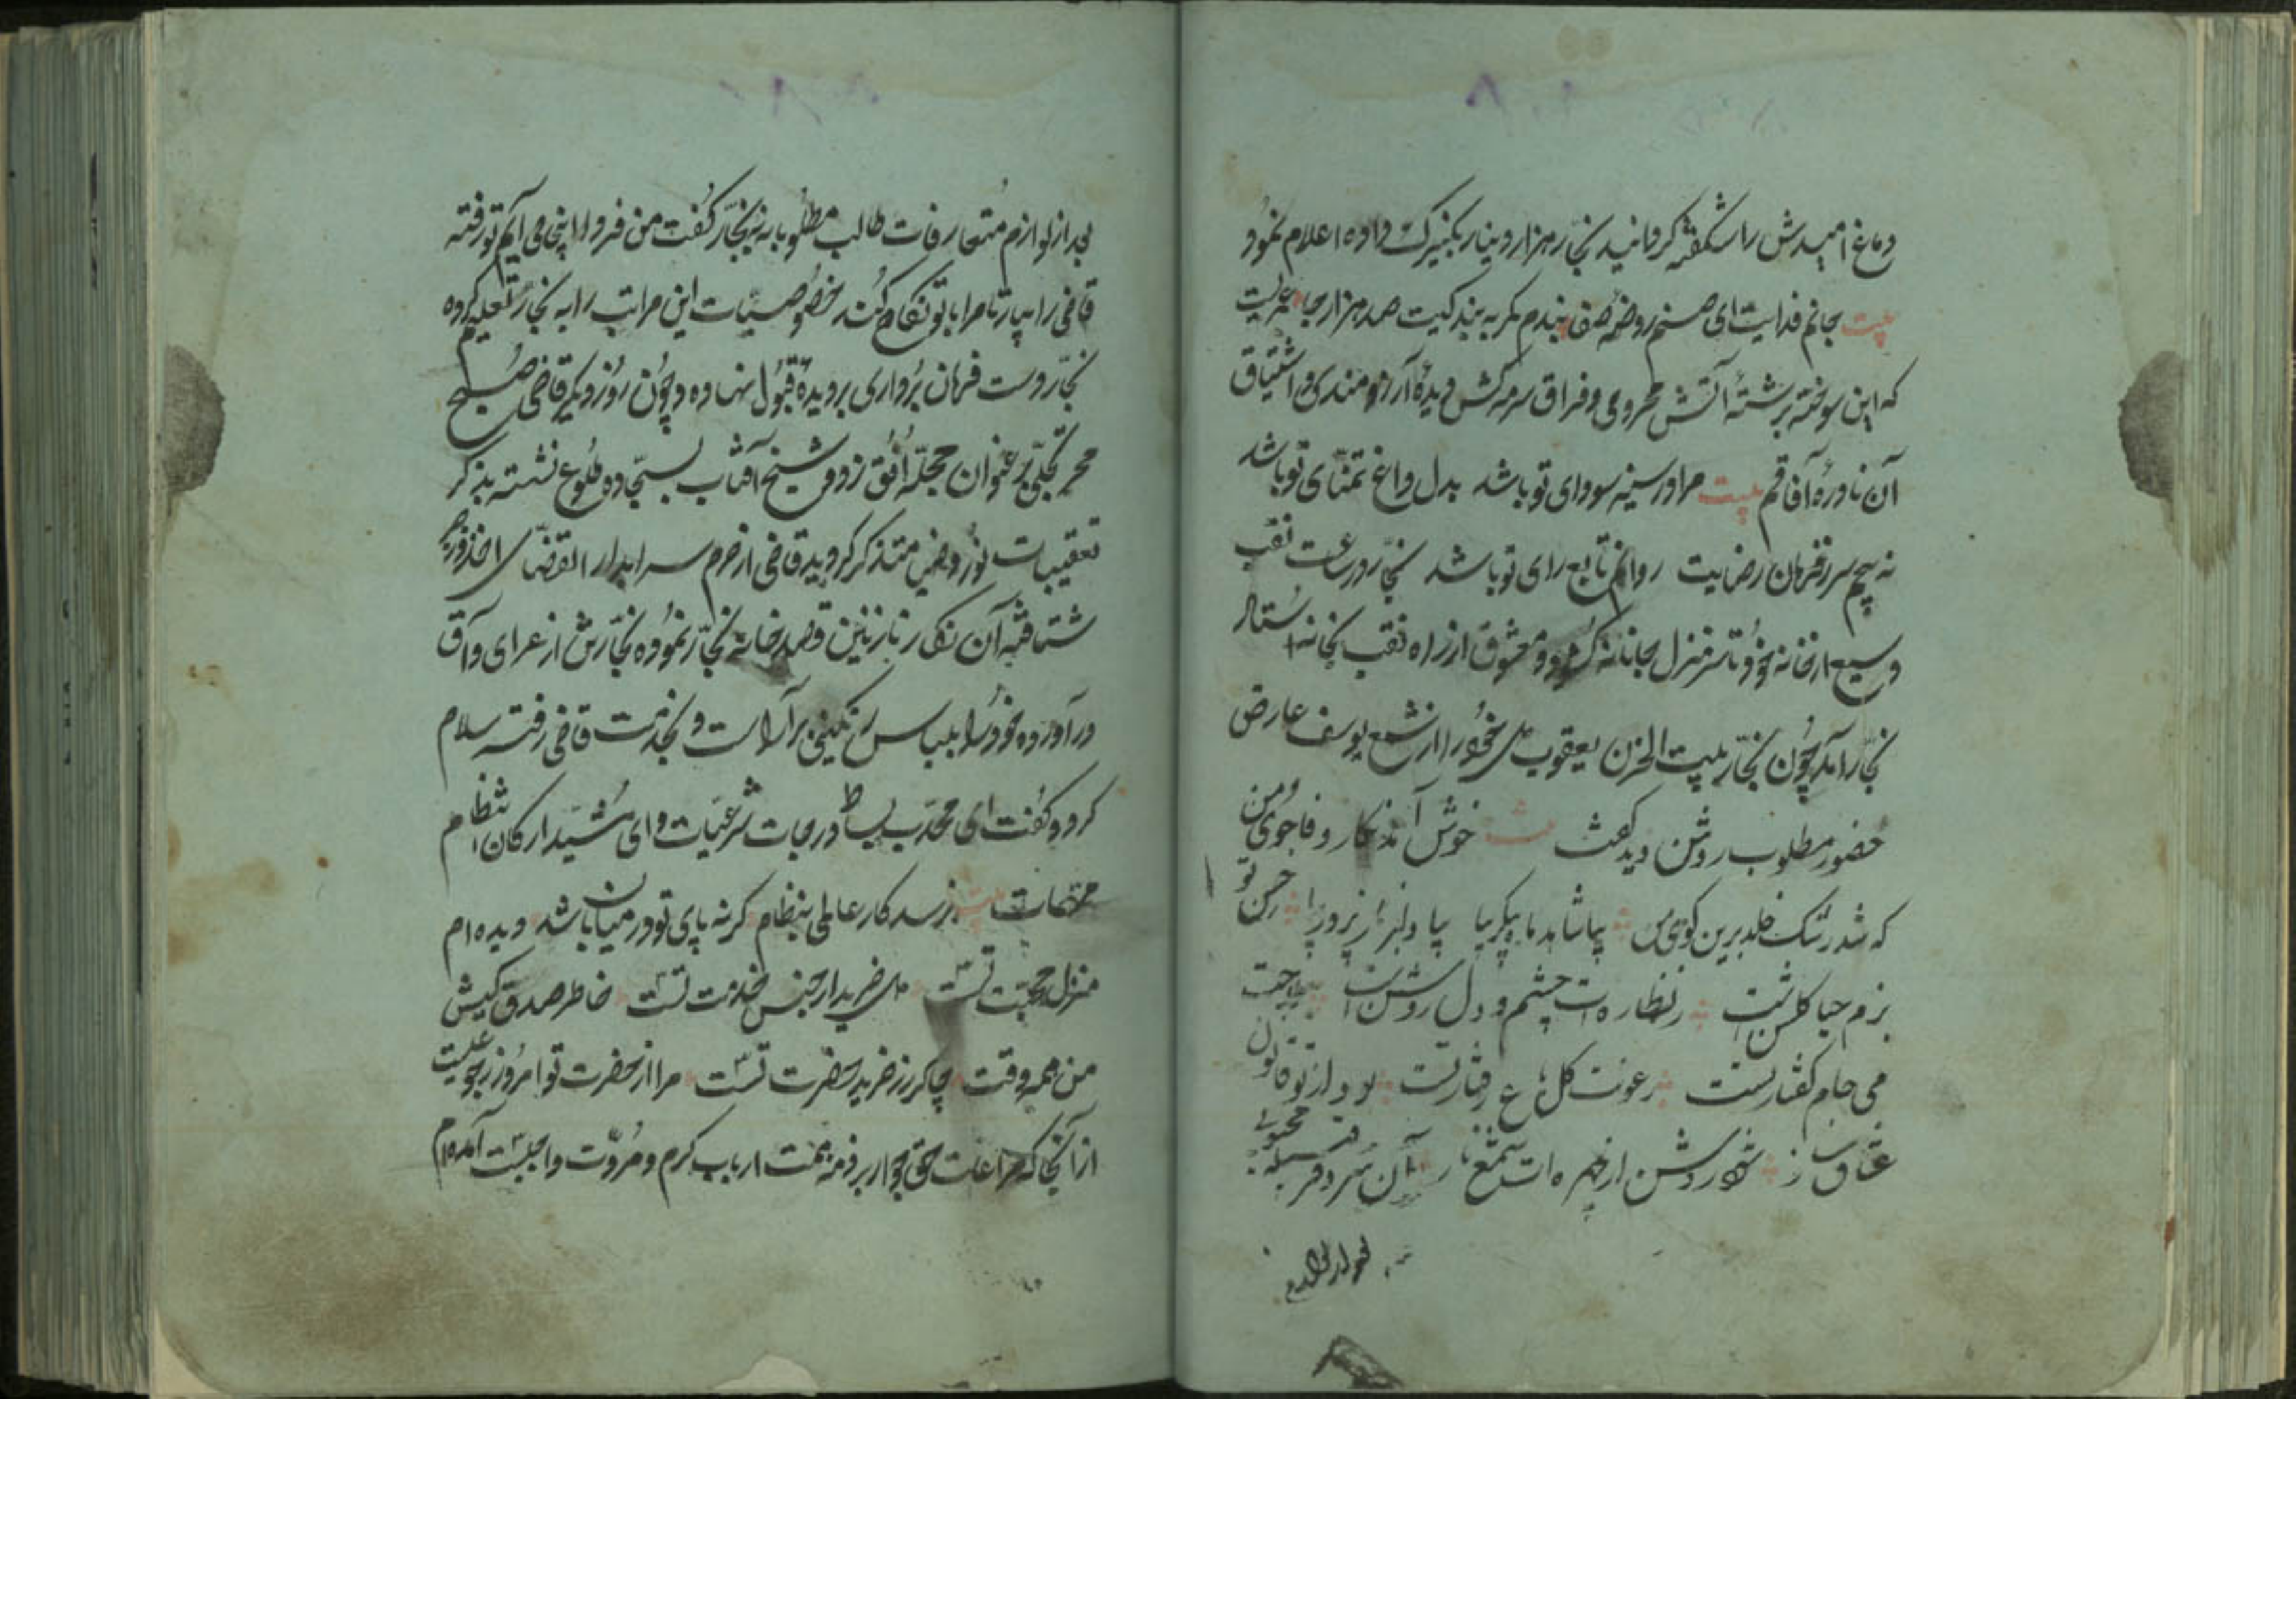 دماغ امیدش را شکفته گردانید نجّار هزار دینار بکنیزک داده اعلام نمود
بیت بجانم فدایت ای صنم روضه صف بندم کمر به بندکیت صد هزار جا عمریست
که این سوخته برشتهٔ آتش محرومی و فراق سرمه کش دیدهٔ آرزومندی و اشتیاق
آن نادرهٔ آفاقم بیت مرا در سینه سودای تو باشد بدل داغ تمنّای تو باشد
نه پیچم سر ز فرمان رضایت روانم تابع رای تو باشد نجّار در ساعت نقب
وسیع از خانه خود تا سر منزل جانانه کرد و معشوق از راه نقب بخانه استاد
نجّار آمد چون نجّار بیت الحزن یعقوب دل خود را از شمع یوسف عارض
حضور مطلوب روشن دید گفت خوش آمد نکار وفاجوی من
که شد رشک خلد برین کوی من بیا شاهد ماه پیکر بیا بیا دلبر ناز پرور بیا ز حسن تو
بزم حیا کلشن است ز نظاره ات چشم و دل روشن است
می جام کفتار تست رعونت کل باغ رفتار تست بود از تو قانون
عشاق ساز شود روشن از چهره ات شمع ناز آن سر دفتر سلسله محبوبی
بعد از لوازم متعارفات طالب مطلوبانه بنجّار کفت من فردا اینجا می آیم تو رفته
قاضی را بیار تا مرا با تو نکاح کند خصوصیّات این مراتب را به نجّار تعلیم کرده
نجّار دست فرمان برداری بر دیدهٔ قبول نهاده و چون روز دیکر قاضی صبح
مهر تجلّی بر عنوان حجلهٔ افق زد و شیخ آفتاب بسجّاده طلوع نشسته بذکر
تعقیبات نور و ضیا متذکر کردید قاضی از حرم سرا بدار القضای
شتافته آن نکار نازنین قصد خانهٔ نجّار نموده نجّارش از عرای و آق
در آورده خود را بلباس رنکینی بر آراست و بخدمت قاضی رفته سلام
کرد و کفت ای محدّب بساط درجات شرعیّات و ای مشیّد ارکان انتظام
مهمات بیت نرسد کار عالمی بنظام کر نه پای تو در میان باشد دیده ام
منزل محبّت تست دل خریدار جنس خدمت تست خاطر صدق کیش
من همه وقت چاکر زر خرید حضرت تست مرا از حضرت تو امروز رجوعیست
از آنجا که مراعات حق جوار بر ذمه همّت ارباب کرم و مروّت واجبست آمده ام